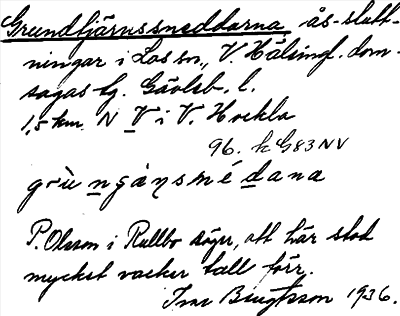 Grundtjärnssneddarna ås-slutt-
ningar i Los sn., V. Hälsingl. dom-
sagas tg. Gävleb. l.
1,5 km N V i V. Hockla
96. k G83NV
grù ngånsmé dana
P. Olsson i Rullbo säger, att här stod
mycket vacker tall förr.
Ivar Bengtsson 1936.